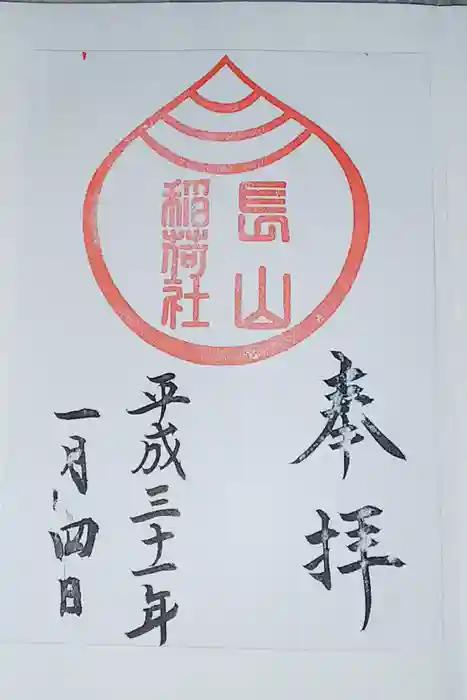 長山
稲荷社
奉拝
平成三十一年
一月四日